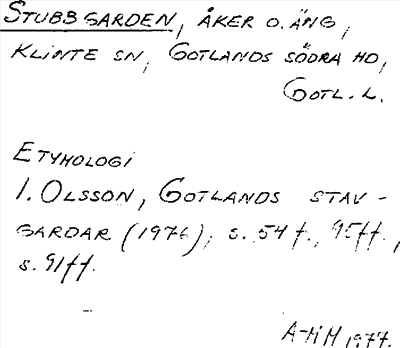 STUBBGARDEN, ÅKER O. ÄNG,
KLINTE SN, GOTLANDS SÖDRA HD,
GOTL. L.
ETYMOLOGI
I. OLSSON, GOTLANDS STAV-
GARDAR (1976), s. 54 f., 95ff.,
s. 91ff.
A-MM 1977.